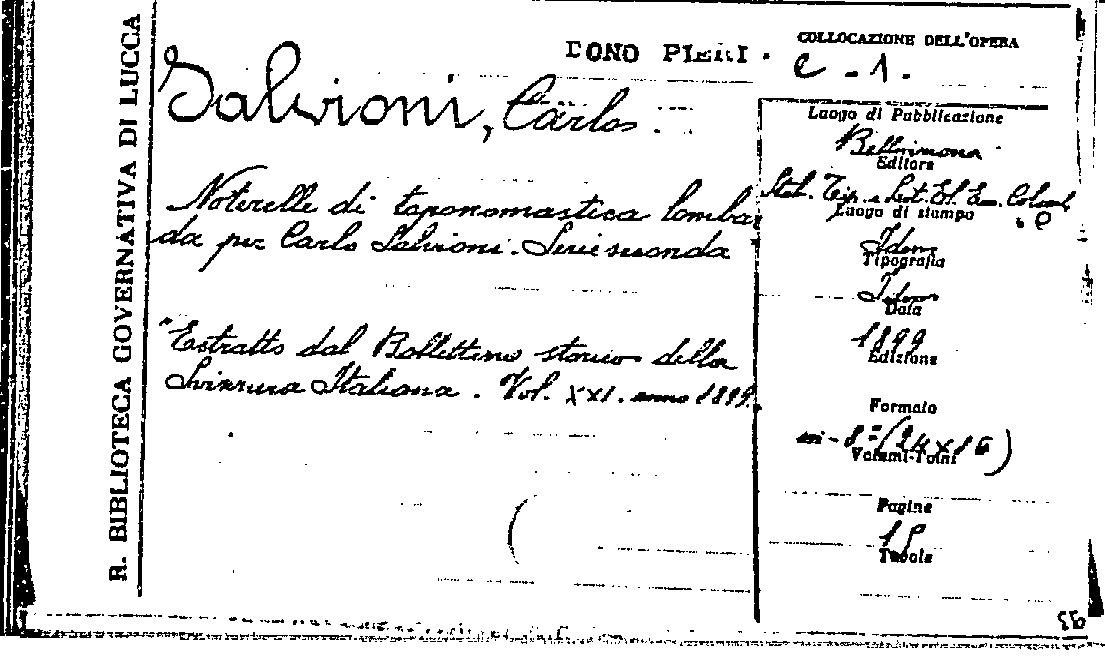 R. BIBLIOTECA GOVERNATIVA DI LUCCA
DONO PIERI.
COLLOCAZIONE DELL'OPERA
C - 1.
Salvioni, Carlo
Noterelle di toponomastica lombar
da per Carlo Salvioni. Serie seconda
"Estratto dal Bollettino storico della
Svizzera Italiana. Vol. XXI. anno 1899.
Luogo di Pubblicazione
Bellinzona
Editore
Stab. Tip. e Lit. El. Em. Colombi
e C
Luogo di stampa
Idem
Tipografia
Idem
Data
1899
Edizione
Formato
in-8=(24x16)
Volumi-Tomi
Pagine
Tavole